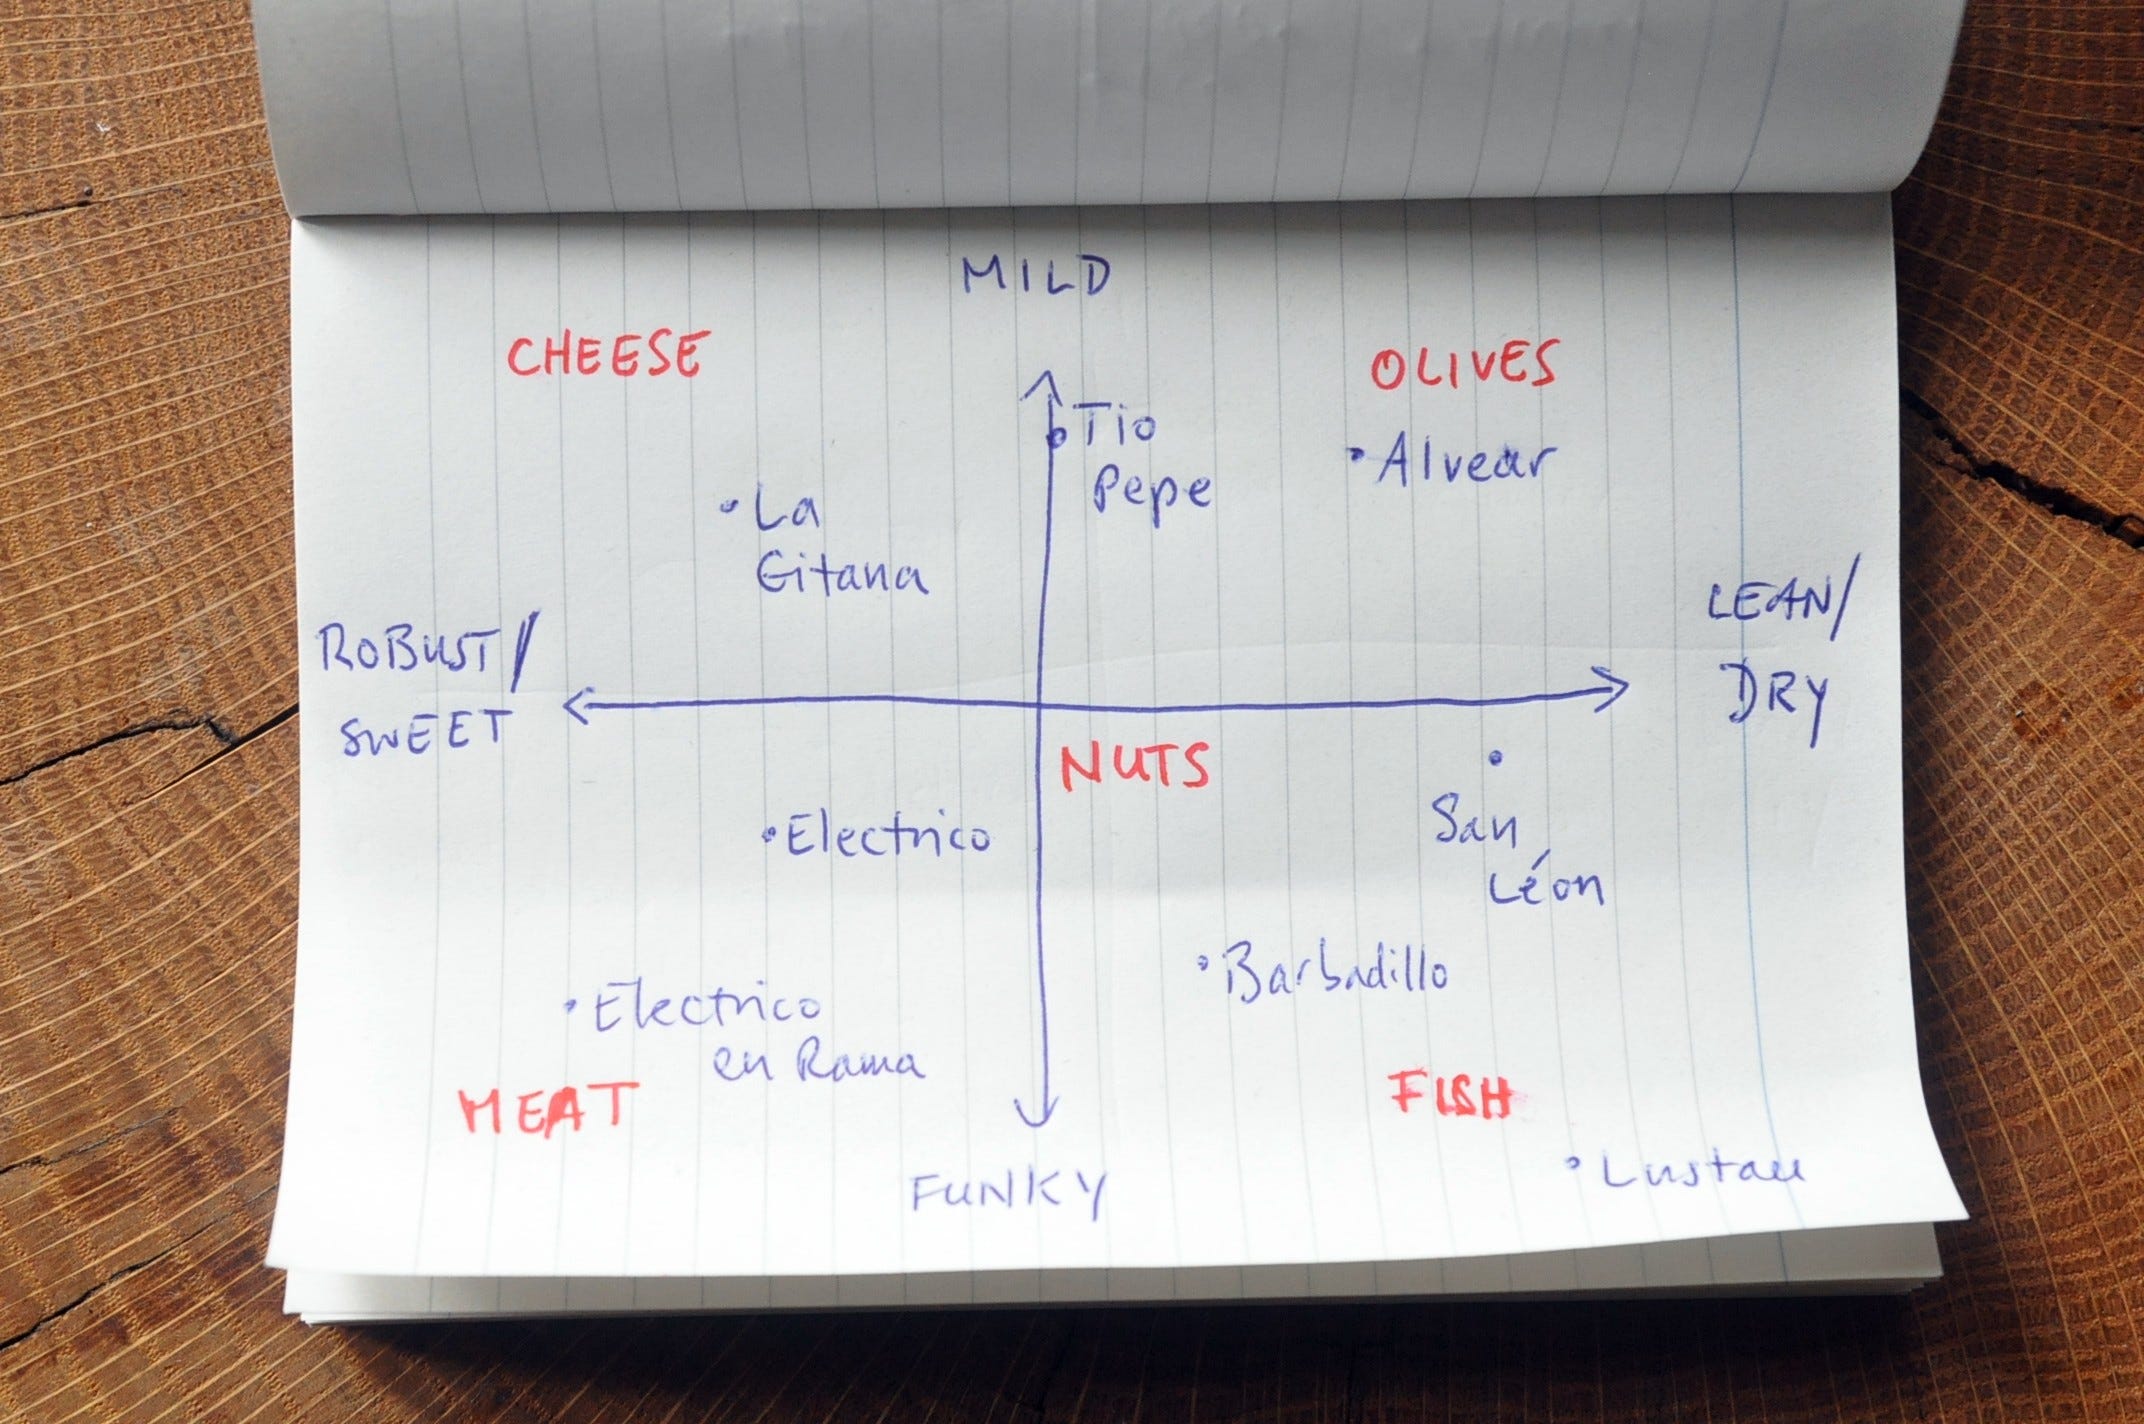 MILD
CHEESE
OLIVES
Tio
Pepe
Alvear
La
Gitana
ROBUST/
SWEET
LEAN/
DRY
NUTS
Electrico
San
Léon
Barbadillo
Electrico
en Rama
MEAT
FISH
FUNKY
Lustau